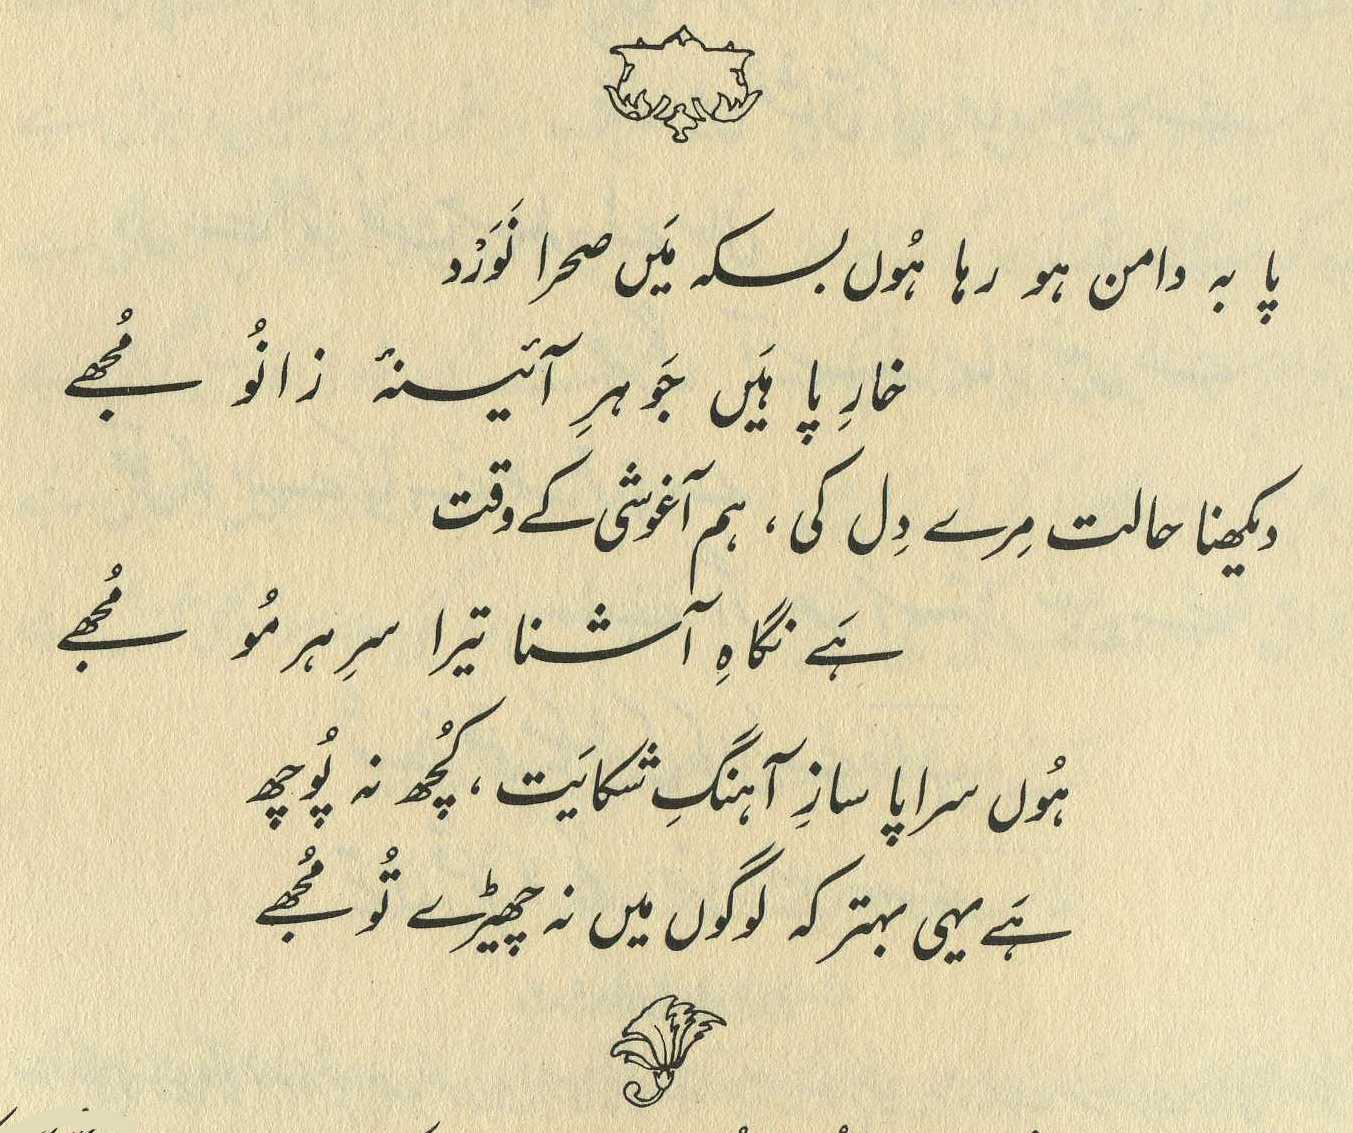 پا بہ دامن ہو رہا ہُوں بسکہ مَیں صحرا نَوَرْد
خارِ پا ہَیں جَوہرِ آئیسنۂ زانُو مُجھے
دیکھنا حالت مِرے دِل کی ، ہم آغوشی کے وقت
ہَے نگاہِ آشنا تیرا سرِ ہر مُو مُجھے
ہُوں سراپا سازِ آہنگِ شکایَت ، کُچھ نہ پُوچھ
ہَے یہی بہتر کہ لوگوں میں نہ چھیڑے تُو مُجھے